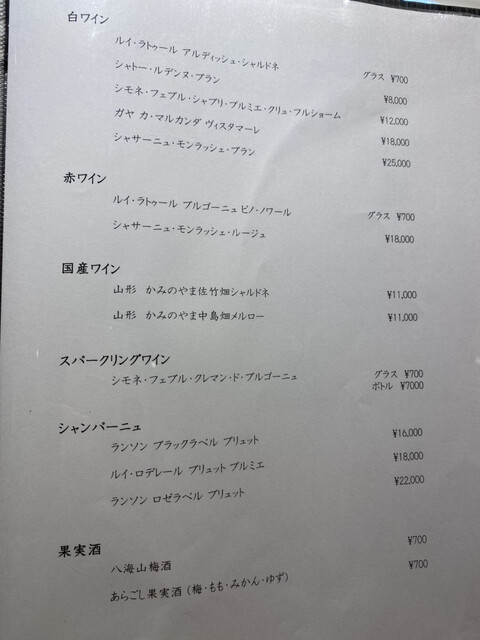 白ワイン
ルイ・ラトゥール アルディッシュ・シャルドネ グラス ¥700
シャトー・ルデンヌ・ブラン ¥8,000
シモネ・フェブル・シャブリ・プルミエ・クリュ・フルショーム ¥12,000
ガヤ カ・マルカンダ ヴィスタマーレ ¥18,000
シャサーニュ・モンラッシェ・ブラン ¥25,000
赤ワイン
ルイ・ラトゥール ブルゴーニュ ピノ・ノワール グラス ¥700
シャサーニュ・モンラッシェ・ルージュ ¥18,000
国産ワイン
山形 かみのやま佐竹畑シャルドネ ¥11,000
山形 かみのやま中島畑メルロー ¥11,000
スパークリングワイン
シモネ・フェブル・クレマン・ド・ブルゴーニュ グラス ¥700
ボトル ¥7000
シャンパーニュ
ランソン ブラックラベル ブリュット ¥16,000
ルイ・ロデレール ブリュット プルミエ ¥18,000
ランソン ロゼラベル ブリュット ¥22,000
果実酒
八海山梅酒 ¥700
あらごし果実酒 (梅・もも・みかん・ゆず) ¥700